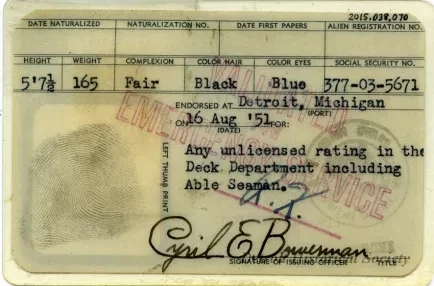 2015.038.070
DATE NATURALIZED NATURALIZATION NO. DATE FIRST PAPERS ALIEN REGISTRATION NO.
HEIGHT WEIGHT COMPLEXION COLOR HAIR COLOR EYES SOCIAL SECURITY NO.
5'7½ 165 Fair Black Blue 377-03-5671
ENDORSED AT Detroit, Michigan
(PORT)
ON 16 Aug '51 FOR:
(DATE)
VALIDATED
EMERGENCY SERVICE
Any unlicensed rating in the
Deck Department including
Able Seaman.
LEFT THUMB PRINT
Cyril E Bowerman
SIGNATURE OF ISSUING OFFICER TITLE
Society